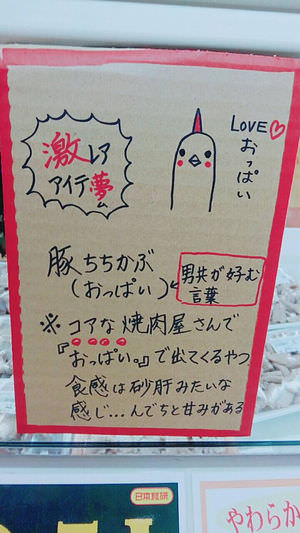 激レア
アイテ夢
ム
LOVE♡
おっぱい
豚ちちかぶ
(おっぱい)
男共が好む
言葉
※コアな焼肉屋さんで
『おっぱい。』で出てくるやつ
食感は砂肝みたいな
感じ…んでちと甘みがある
日本食研
やわらか